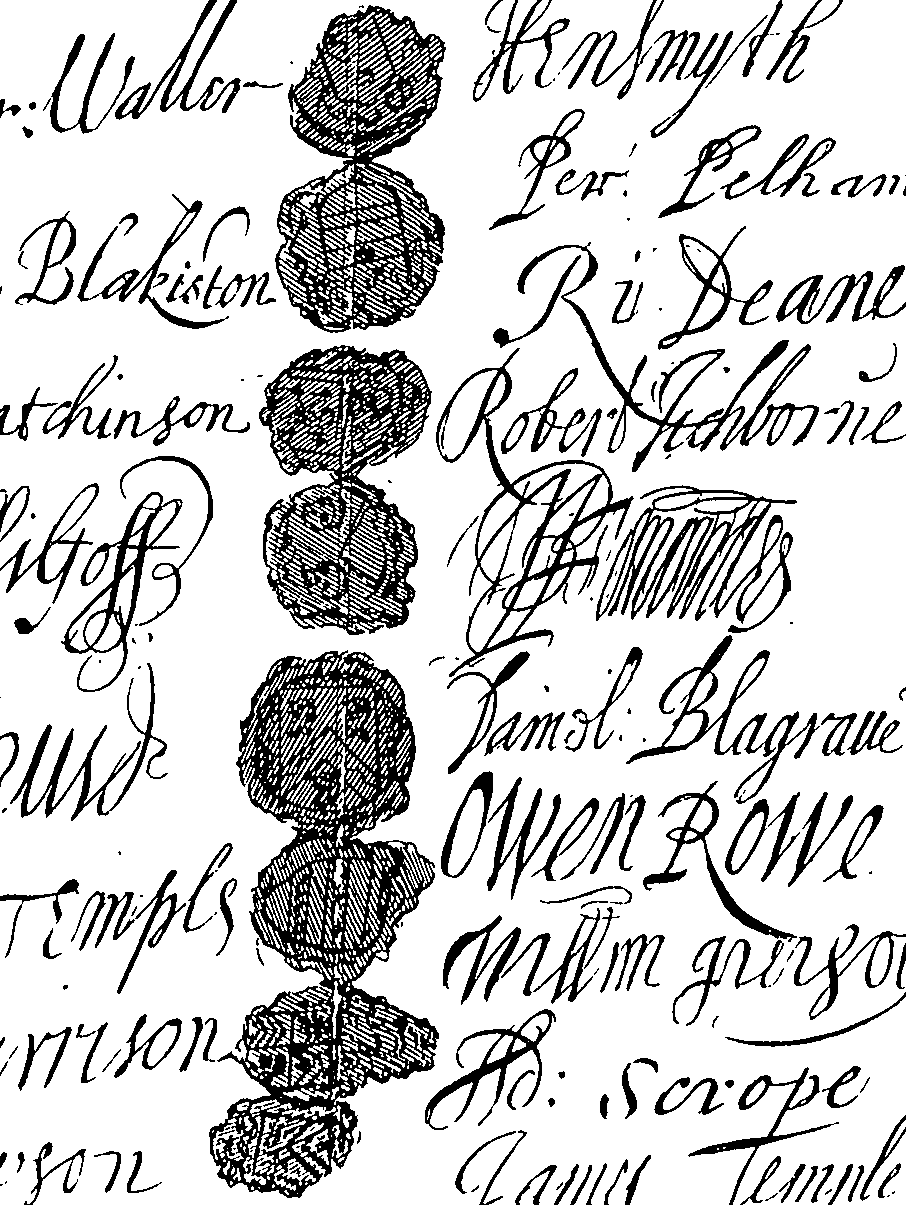 r: Waller
Blakiston
utchinson
Goff
Temple
arrison
wson
Hen Smyth
Per: Pelham
Ri Deane
Robert Tichborne
Daniel: Blagraue
Owen Rowe
Willm
Ad: Scrope
James Temple